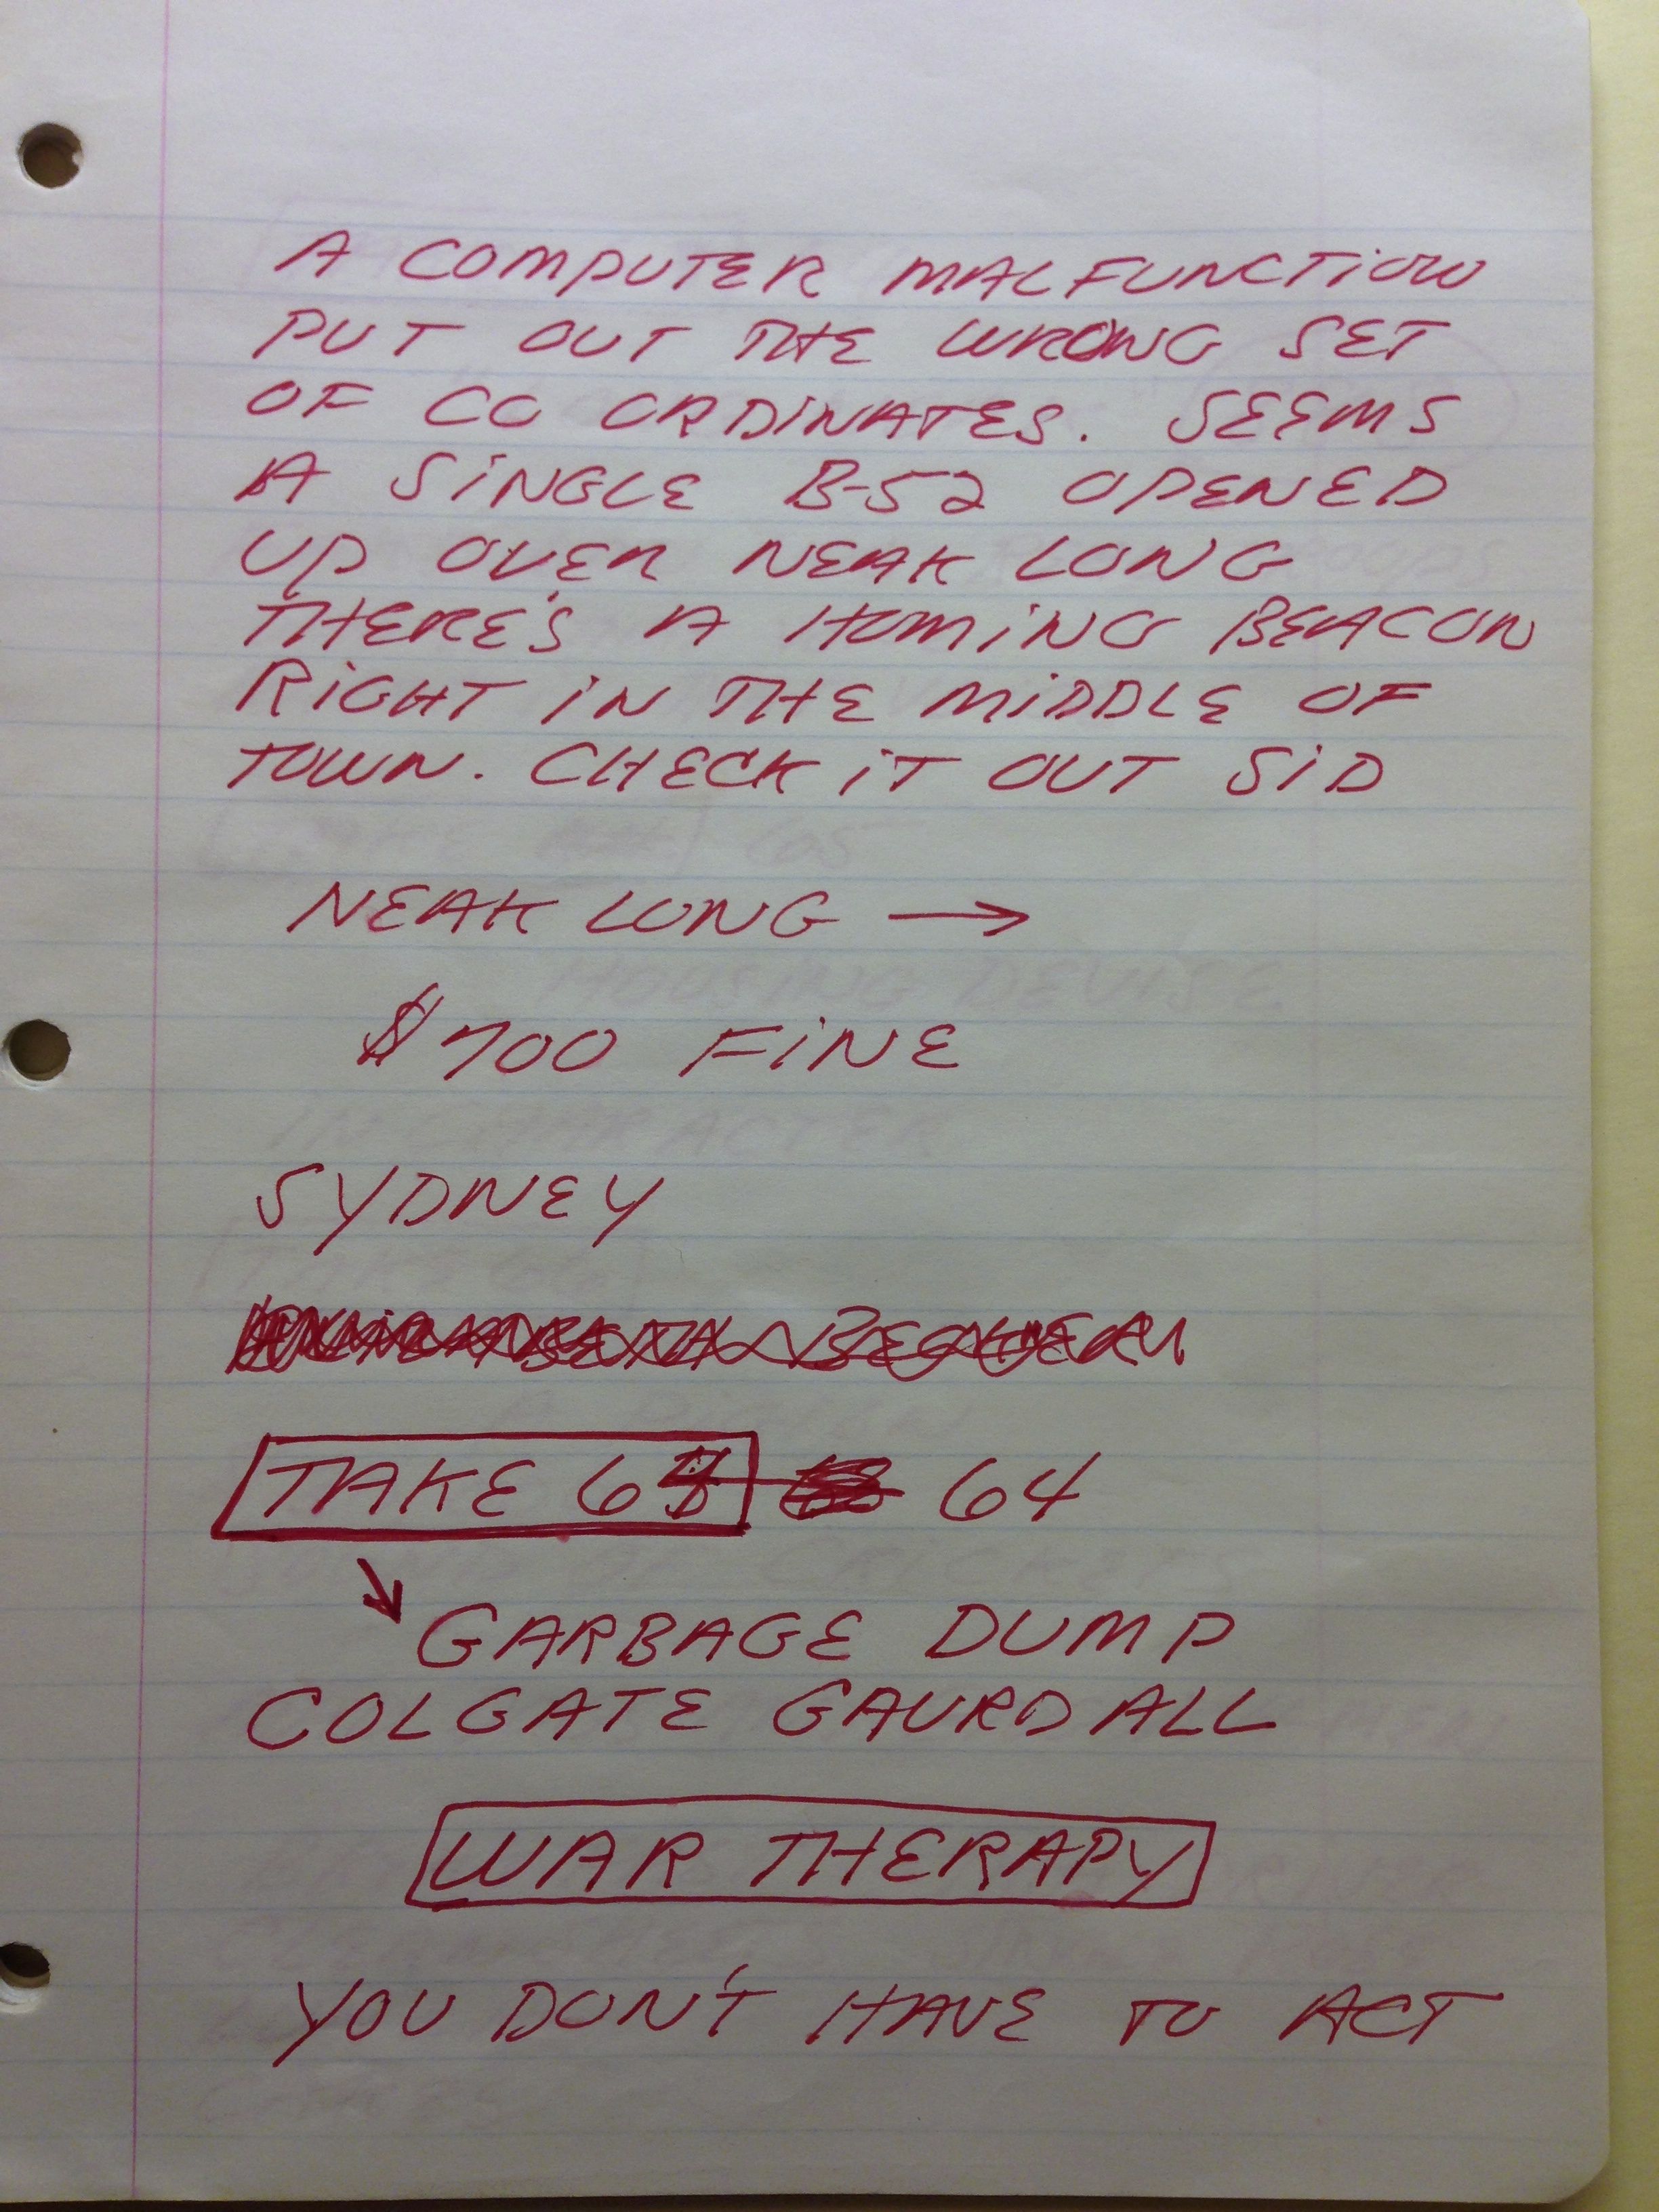 A COMPUTER MALFUNCTION
PUT OUT THE WRONG SET
OF CO ORDINATES. SEEMS
A SINGLE B-52 OPENED
UP OVER NEAK LONG
THERE'S A HOMING BEACON
RIGHT IN THE MIDDLE OF
TOWN. CHECK IT OUT SID
NEAK LONG →
$700 FINE
SYDNEY
TAKE 64 64
GARBAGE DUMP
COLGATE GAURD ALL
WAR THERAPY
YOU DON'T HAVE TO ACT